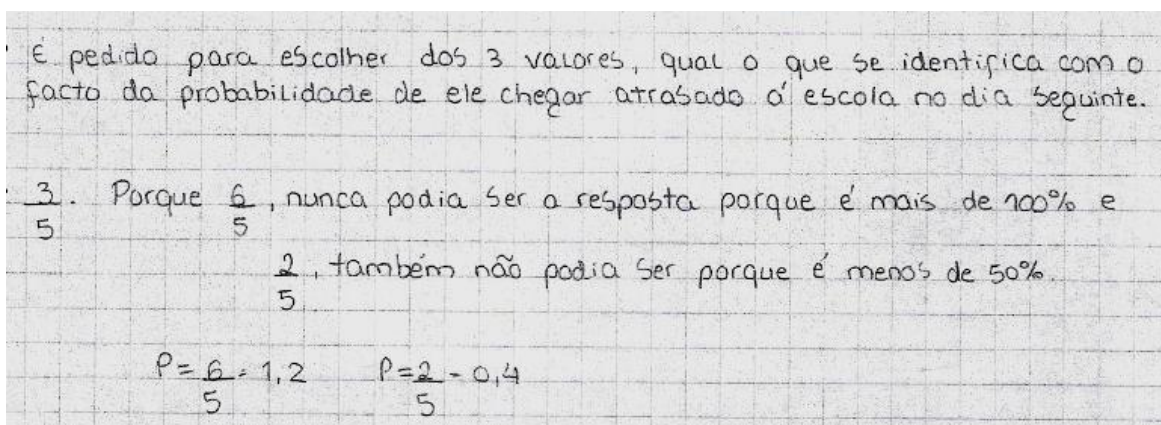 É pedido para escolher dos 3 valores, qual o que se identifica com o
facto da probabilidade de ele chegar atrasado á escola no dia seguinte.
3/5. Porque 6/5, nunca podia ser a resposta porque é mais de 100% e
2/5, também não podia ser porque é menos de 50%.
P = 6/5 = 1,2 P = 2/5 = 0,4